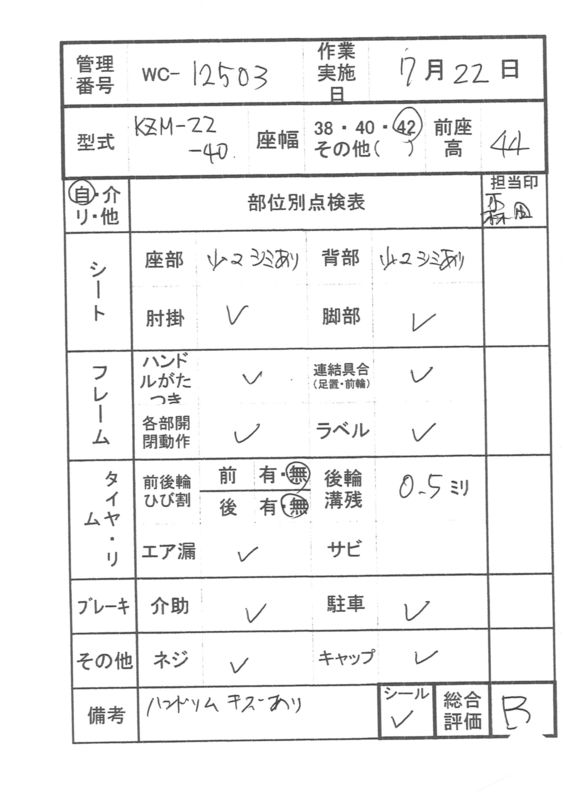 管理番号 WC-12503 作業実施日 7月22日
型式 KZM-22-40 座幅 38・40・42 その他( ) 前座高 44
自・介リ・他 部位別点検表 担当印
シート 座部 小々シミあり 背部 小々シミあり
肘掛 ✓ 脚部 ✓
フレーム ハンドルがたつき ✓ 連結具合(足置・前輪) ✓
各部開閉動作 ✓ ラベル ✓
タイヤ・リム 前後輪ひび割 前 有・無 後輪溝残 0.5ミリ
後 有・無
エア漏 ✓ サビ
ブレーキ 介助 ✓ 駐車 ✓
その他 ネジ ✓ キャップ ✓
備考 ハンドリム キズあり シール ✓ 総合評価 B